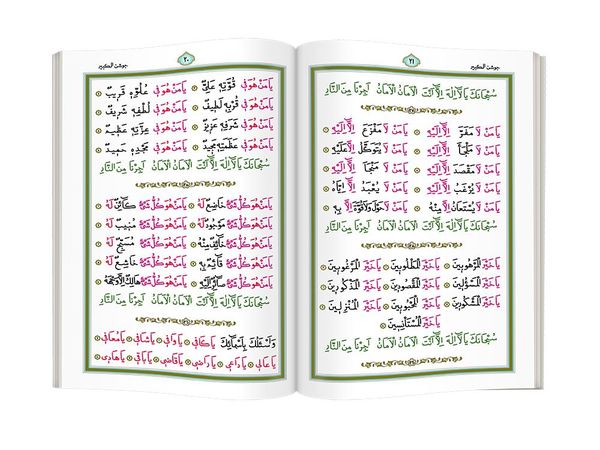 جوشن الكبير
٢٠
يَا مَنْ هُوَ فِي قُوَّتِهِ عَلِيٌّ يَا مَنْ هُوَ فِي عُلُوِّهِ قَرِيبٌ
يَا مَنْ هُوَ فِي قُرْبِهِ لَطِيفٌ يَا مَنْ هُوَ فِي لُطْفِهِ شَرِيفٌ
يَا مَنْ هُوَ فِي شَرَفِهِ عَزِيزٌ يَا مَنْ هُوَ فِي عِزَّتِهِ عَظِيمٌ
يَا مَنْ هُوَ فِي عَظَمَتِهِ مَجِيدٌ يَا مَنْ هُوَ فِي مَجْدِهِ حَمِيدٌ
سُبْحَانَكَ يَا لَا إِلٰهَ إِلَّا أَنْتَ الْأَمَانُ الْأَمَانُ أَجِرْنَا مِنَ النَّارِ
يَا مَنْ هُوَ كُلُّ شَيْءٍ خَاضِعٌ لَهُ يَا مَنْ هُوَ كُلُّ شَيْءٍ كَائِنٌ لَهُ
يَا مَنْ هُوَ كُلُّ شَيْءٍ مَوْجُودٌ لَهُ يَا مَنْ هُوَ كُلُّ شَيْءٍ مُنِيبٌ لَهُ
يَا مَنْ هُوَ كُلُّ شَيْءٍ خَائِفٌ مِنْهُ يَا مَنْ هُوَ كُلُّ شَيْءٍ مُسَبِّحٌ لَهُ
يَا مَنْ هُوَ كُلُّ شَيْءٍ قَائِمٌ بِهِ يَا مَنْ هُوَ كُلُّ شَيْءٍ خَاشِعٌ لَهُ
يَا مَنْ هُوَ كُلُّ شَيْءٍ صَائِرٌ إِلَيْهِ يَا مَنْ هُوَ كُلُّ شَيْءٍ هَالِكٌ إِلَّا وَجْهَهُ
سُبْحَانَكَ يَا لَا إِلٰهَ إِلَّا أَنْتَ الْأَمَانُ الْأَمَانُ أَجِرْنَا مِنَ النَّارِ
وَأَسْئَلُكَ بِأَسْمَائِكَ يَا كَافِي يَا وَافِي يَا شَافِي يَا مُعَافِي
يَا عَالِي يَا دَاعِي يَا رَاضِي يَا قَاضِي يَا بَاقِي يَا هَادِي
جوشن الكبير
٢١
سُبْحَانَكَ يَا لَا إِلٰهَ إِلَّا أَنْتَ الْأَمَانُ الْأَمَانُ أَجِرْنَا مِنَ النَّارِ
يَا مَنْ لَا مَفَرَّ إِلَّا إِلَيْهِ يَا مَنْ لَا مَفْزَعَ إِلَّا إِلَيْهِ
يَا مَنْ لَا مَلْجَأَ إِلَّا إِلَيْهِ يَا مَنْ لَا يُتَوَكَّلُ إِلَّا عَلَيْهِ
يَا مَنْ لَا مَقْصَدَ إِلَّا إِلَيْهِ يَا مَنْ لَا مَنْجَا إِلَّا إِلَيْهِ
يَا مَنْ لَا يُرْغَبُ إِلَّا إِلَيْهِ يَا مَنْ لَا يُعْبَدُ إِلَّا إِيَّاهُ
يَا مَنْ لَا يُسْتَعَانُ إِلَّا مِنْهُ يَا مَنْ لَا حَوْلَ وَلَا قُوَّةَ إِلَّا بِهِ
سُبْحَانَكَ يَا لَا إِلٰهَ إِلَّا أَنْتَ الْأَمَانُ الْأَمَانُ أَجِرْنَا مِنَ النَّارِ
يَا خَيْرَ الْمَرْهُوبِينَ يَا خَيْرَ الْمَطْلُوبِينَ يَا خَيْرَ الْمَرْغُوبِينَ
يَا خَيْرَ الْمَسْؤُلِينَ يَا خَيْرَ الْمَقْصُودِينَ يَا خَيْرَ الْمَذْكُورِينَ
يَا خَيْرَ الْمَشْكُورِينَ يَا خَيْرَ الْمَحْبُوبِينَ يَا خَيْرَ الْمُنْزِلِينَ
يَا خَيْرَ الْمُسْتَأْنِسِينَ
سُبْحَانَكَ يَا لَا إِلٰهَ إِلَّا أَنْتَ الْأَمَانُ الْأَمَانُ أَجِرْنَا مِنَ النَّارِ